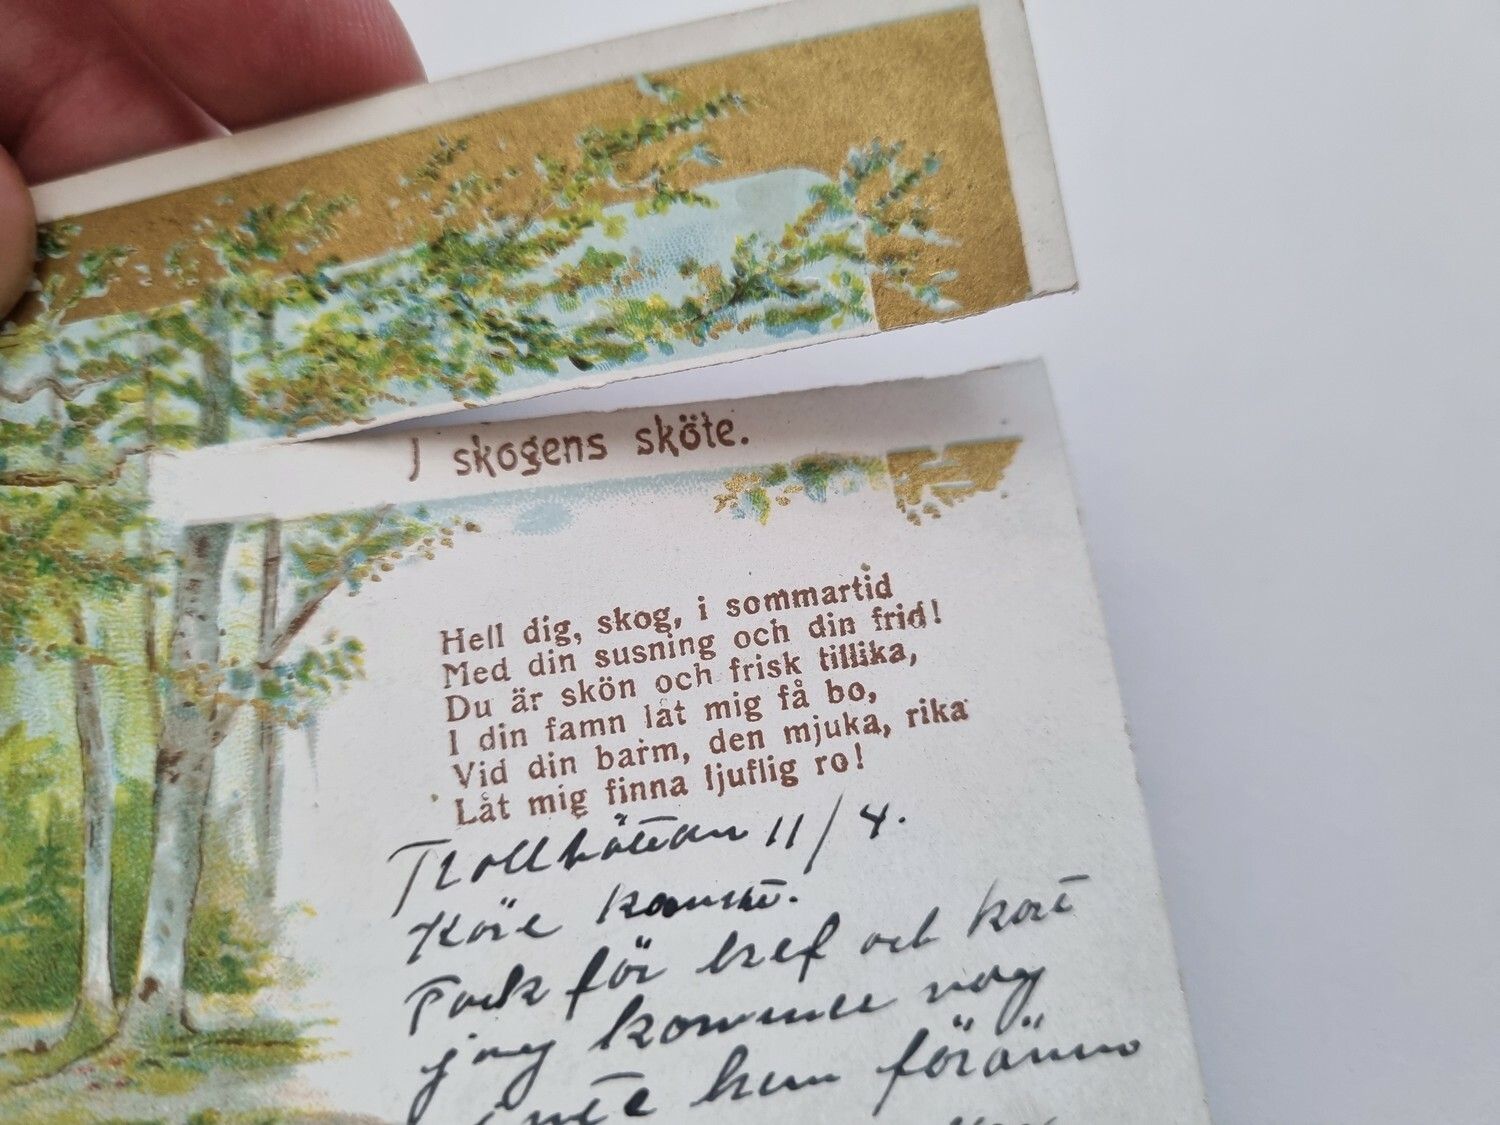 I skogens sköte.
Hell dig, skog, i sommartid
Med din susning och din frid!
Du är skön och frisk tillika,
I din famn låt mig få bo,
Vid din barm, den mjuka, rika
Låt mig finna ljuflig ro!
Trollhättan 11/4.
Käre
Tack för bref och kort
jag kommer nog
inte hem föränn